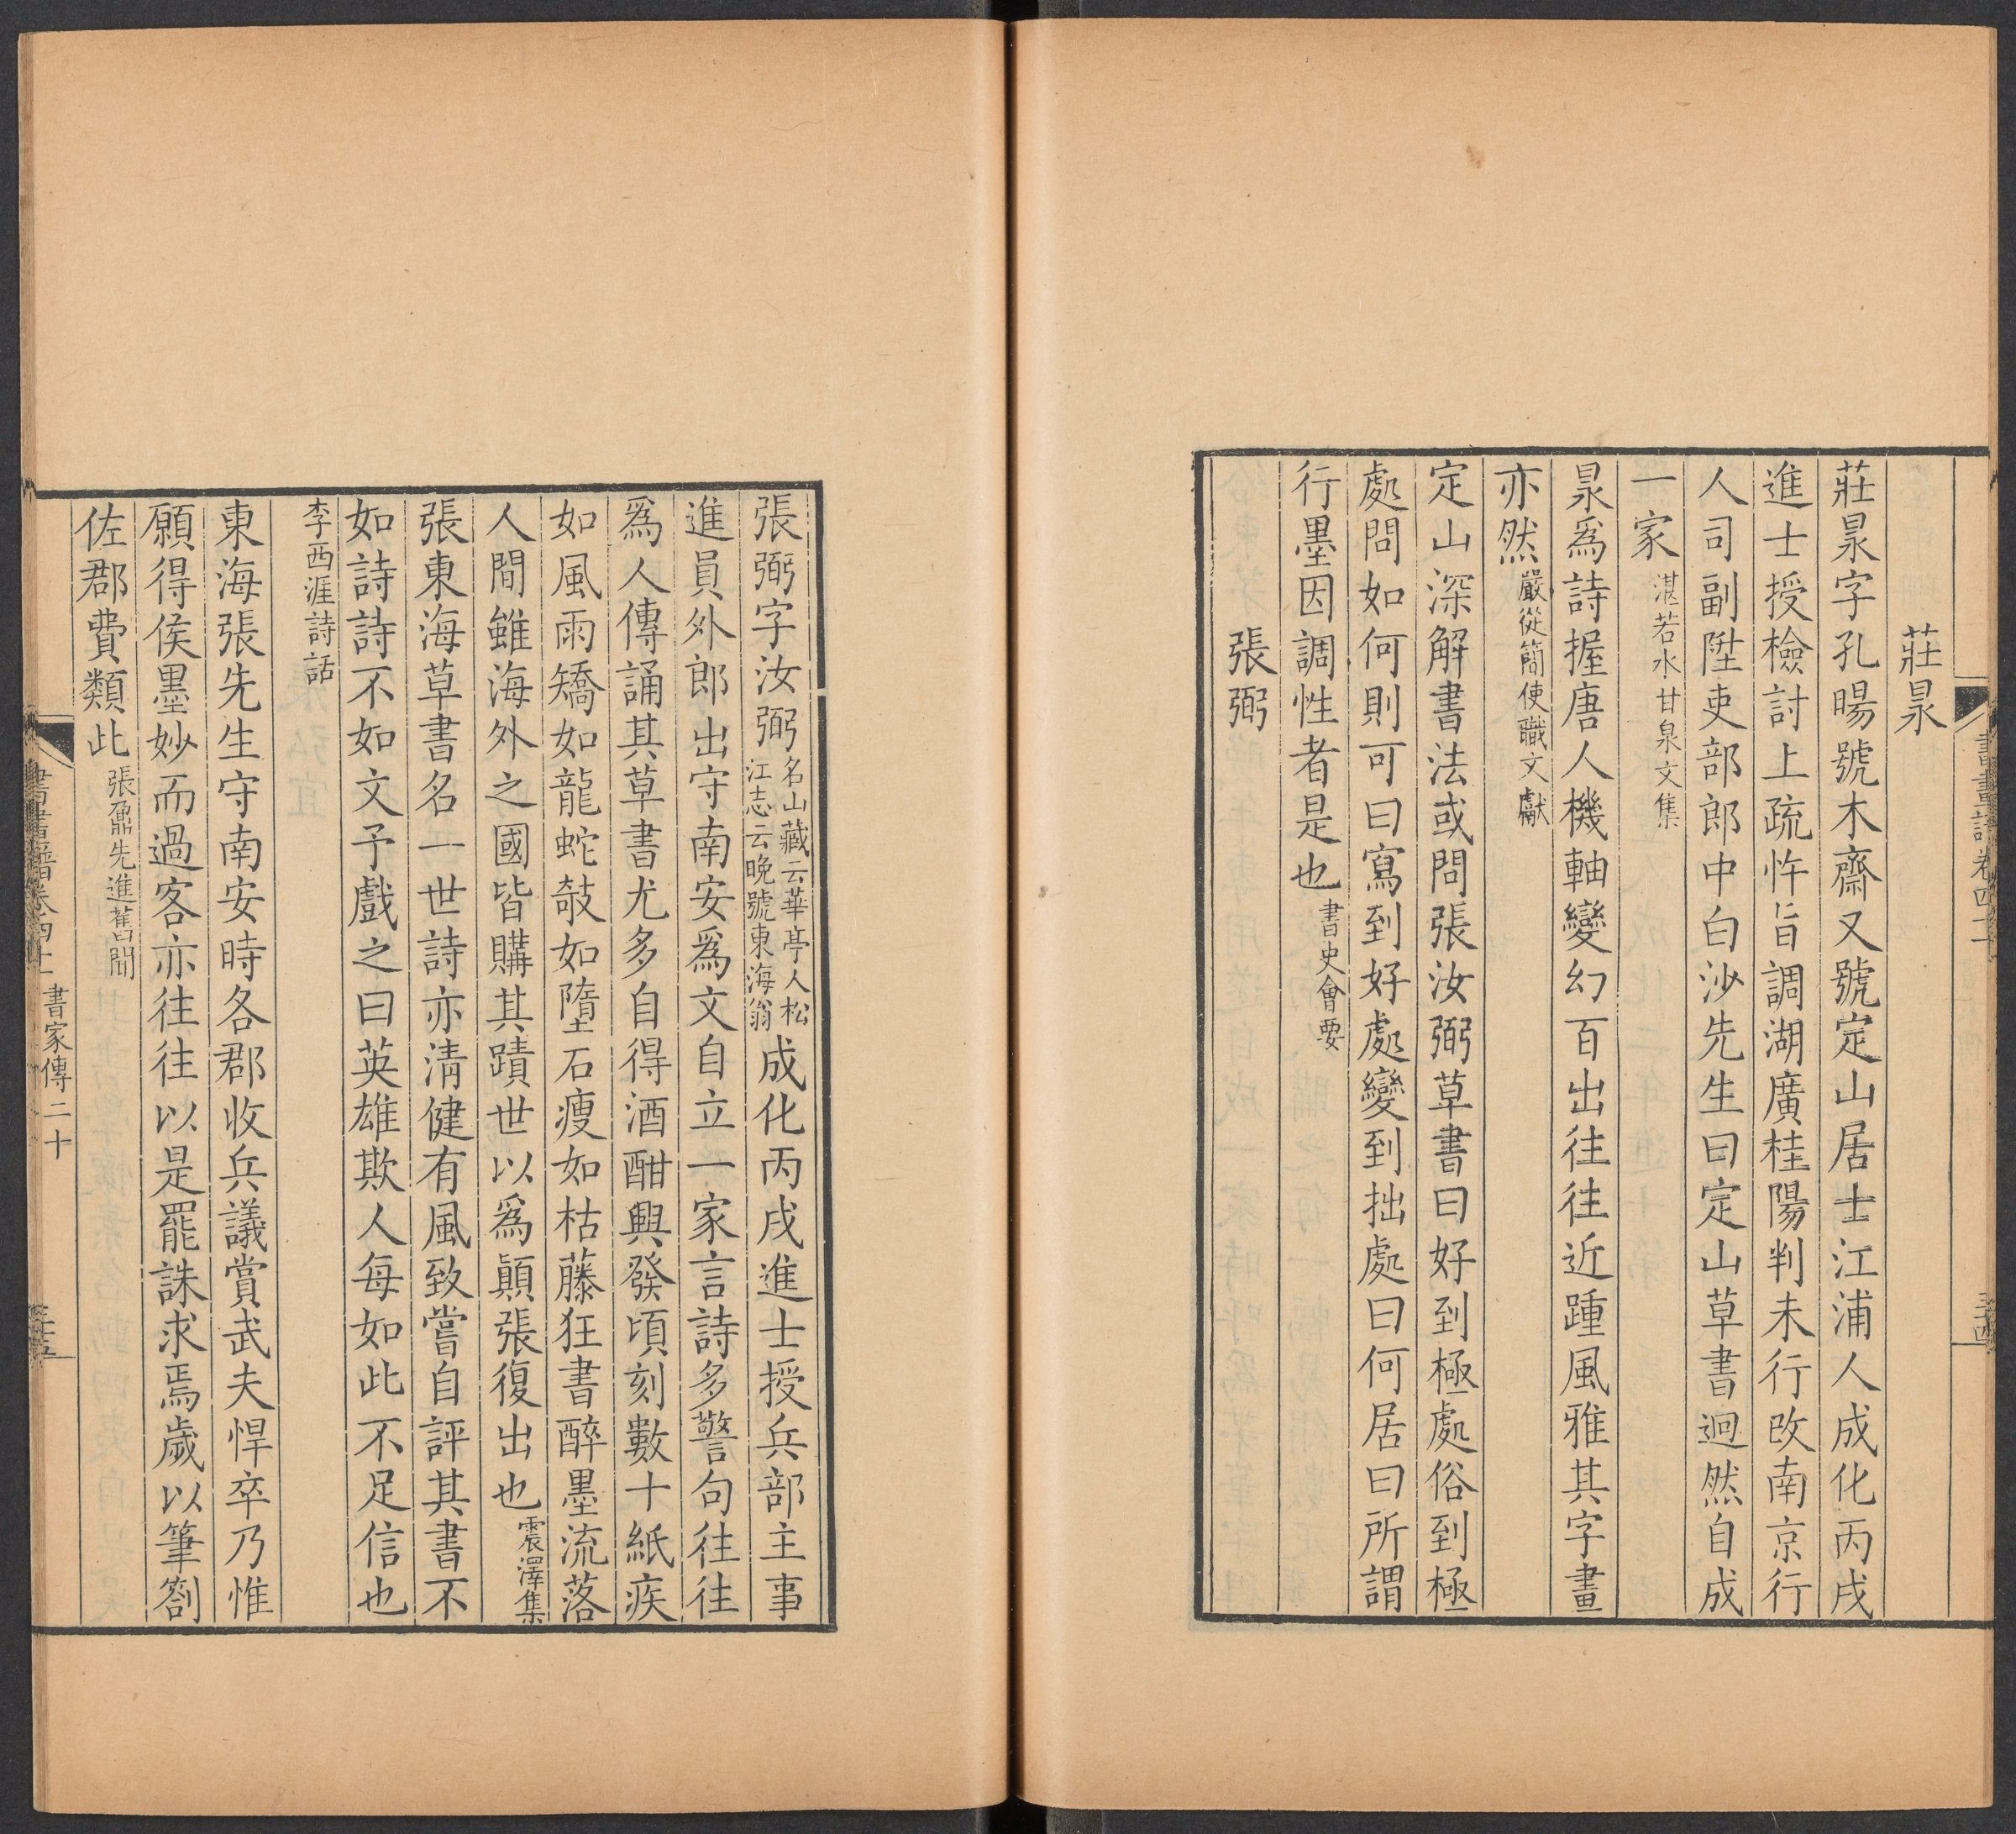 莊㫤
莊㫤字孔暘號木齋又號定山居士江浦人成化丙戌
進士授檢討上疏忤旨調湖廣桂陽判未行改南京行
人司副陞吏部郎中白沙先生曰定山草書迥然自成
一家湛若水甘泉文集
㫤爲詩握唐人機軸變幻百出往往近踵風雅其字畫
亦然嚴從簡使職文獻
定山深解書法或問張汝弼草書曰好到極處俗到極
處問如何則可曰寫到好處變到拙處曰何居曰所謂
行墨因調性者是也書史會要
張弼
張弼字汝弼名山藏云華亭人松江志云晚號東海翁成化丙戌進士授兵部主事
進員外郎出守南安爲文自立一家言詩多警句往往
爲人傳誦其草書尤多自得酒酣興發頃刻數十紙疾
如風雨矯如龍蛇攲如墮石瘦如枯藤狂書醉墨流落
人間雖海外之國皆購其蹟世以爲顚張復出也震澤集
張東海草書名一世詩亦清健有風致嘗自評其書不
如詩詩不如文予戲之曰英雄欺人每如此不足信也
李西涯詩話
東海張先生守南安時各郡收兵議賞武夫悍卒乃惟
願得侯墨妙而過客亦往往以是罷誅求焉歲以筆劄
佐郡費類此張鼐先進舊聞
書家傳二十